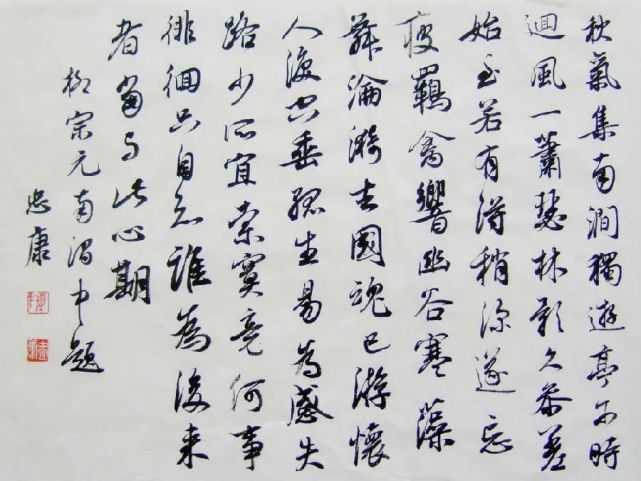 秋氣集南澗獨遊亭午時
迴風一蕭瑟林影久參差
始至若有得稍深遂忘
疲羈禽響幽谷寒藻
舞淪漪去國魂已游懷
人淚空垂孤生易為感失
路少所宜索寞竟何事
徘徊只自知誰為後来
者當与此心期
柳宗元南澗中題
忠康